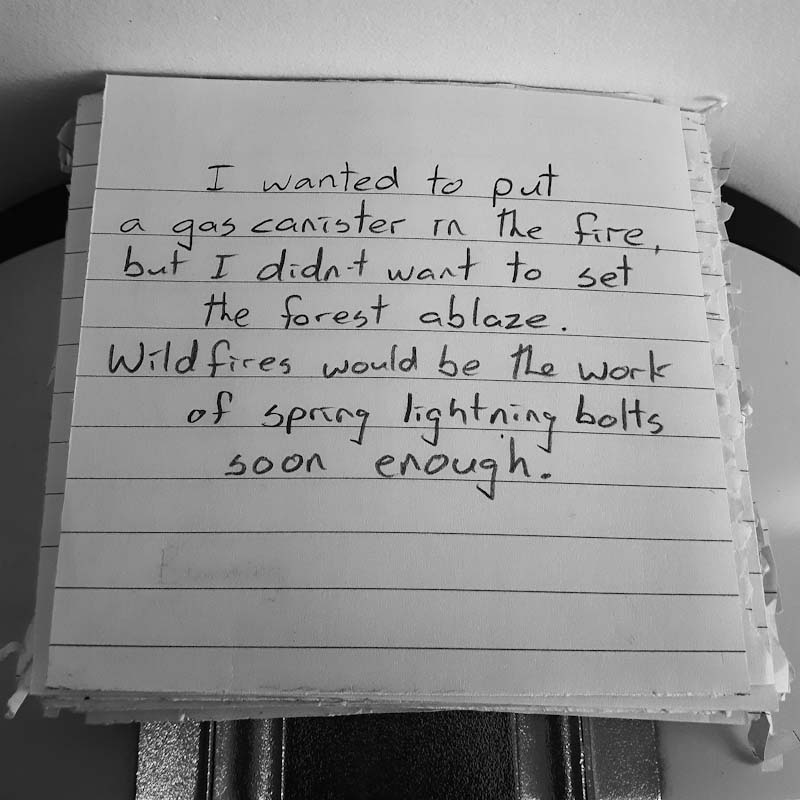 I wanted to put
a gas canister in the fire,
but I didn't want to set
the forest ablaze.
Wildfires would be the work
of spring lightning bolts
soon enough.